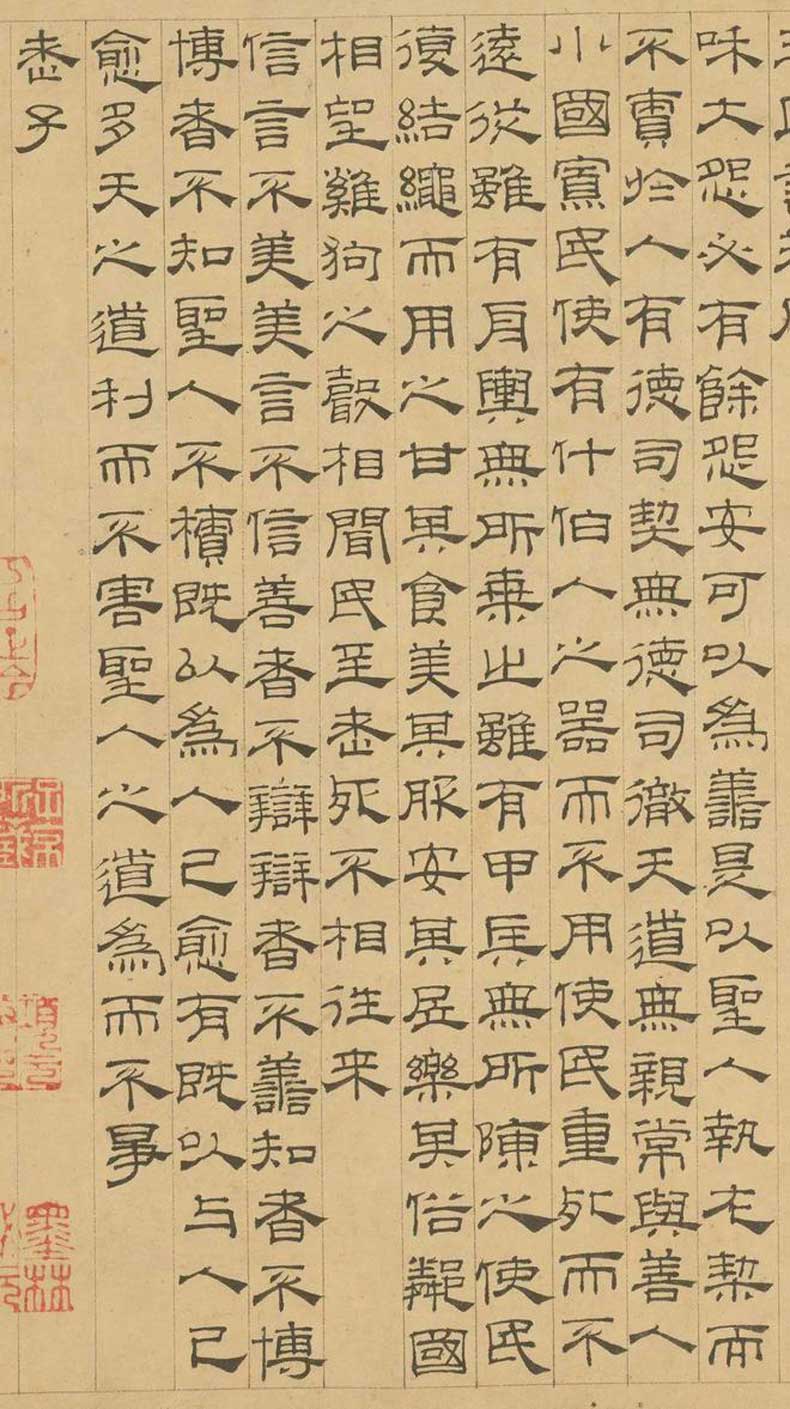 咊大怨必有餘怨安可以為譱是以聖人執左契而
不責於人有德司契無德司徹天道無親常與善人
小國寡民使有什伯人之器而不用使民重死而不
遠徙雖有舟輿無所乘之雖有甲兵無所陳之使民
復結繩而用之甘其食美其服安其居樂其俗鄰國
相望雞狗之聲相聞民至老死不相往来
信言不美美言不信善者不辯辯者不譱知者不博
博者不知聖人不積既以為人己愈有既以与人己
愈多天之道利而不害聖人之道為而不爭
老子
墨林